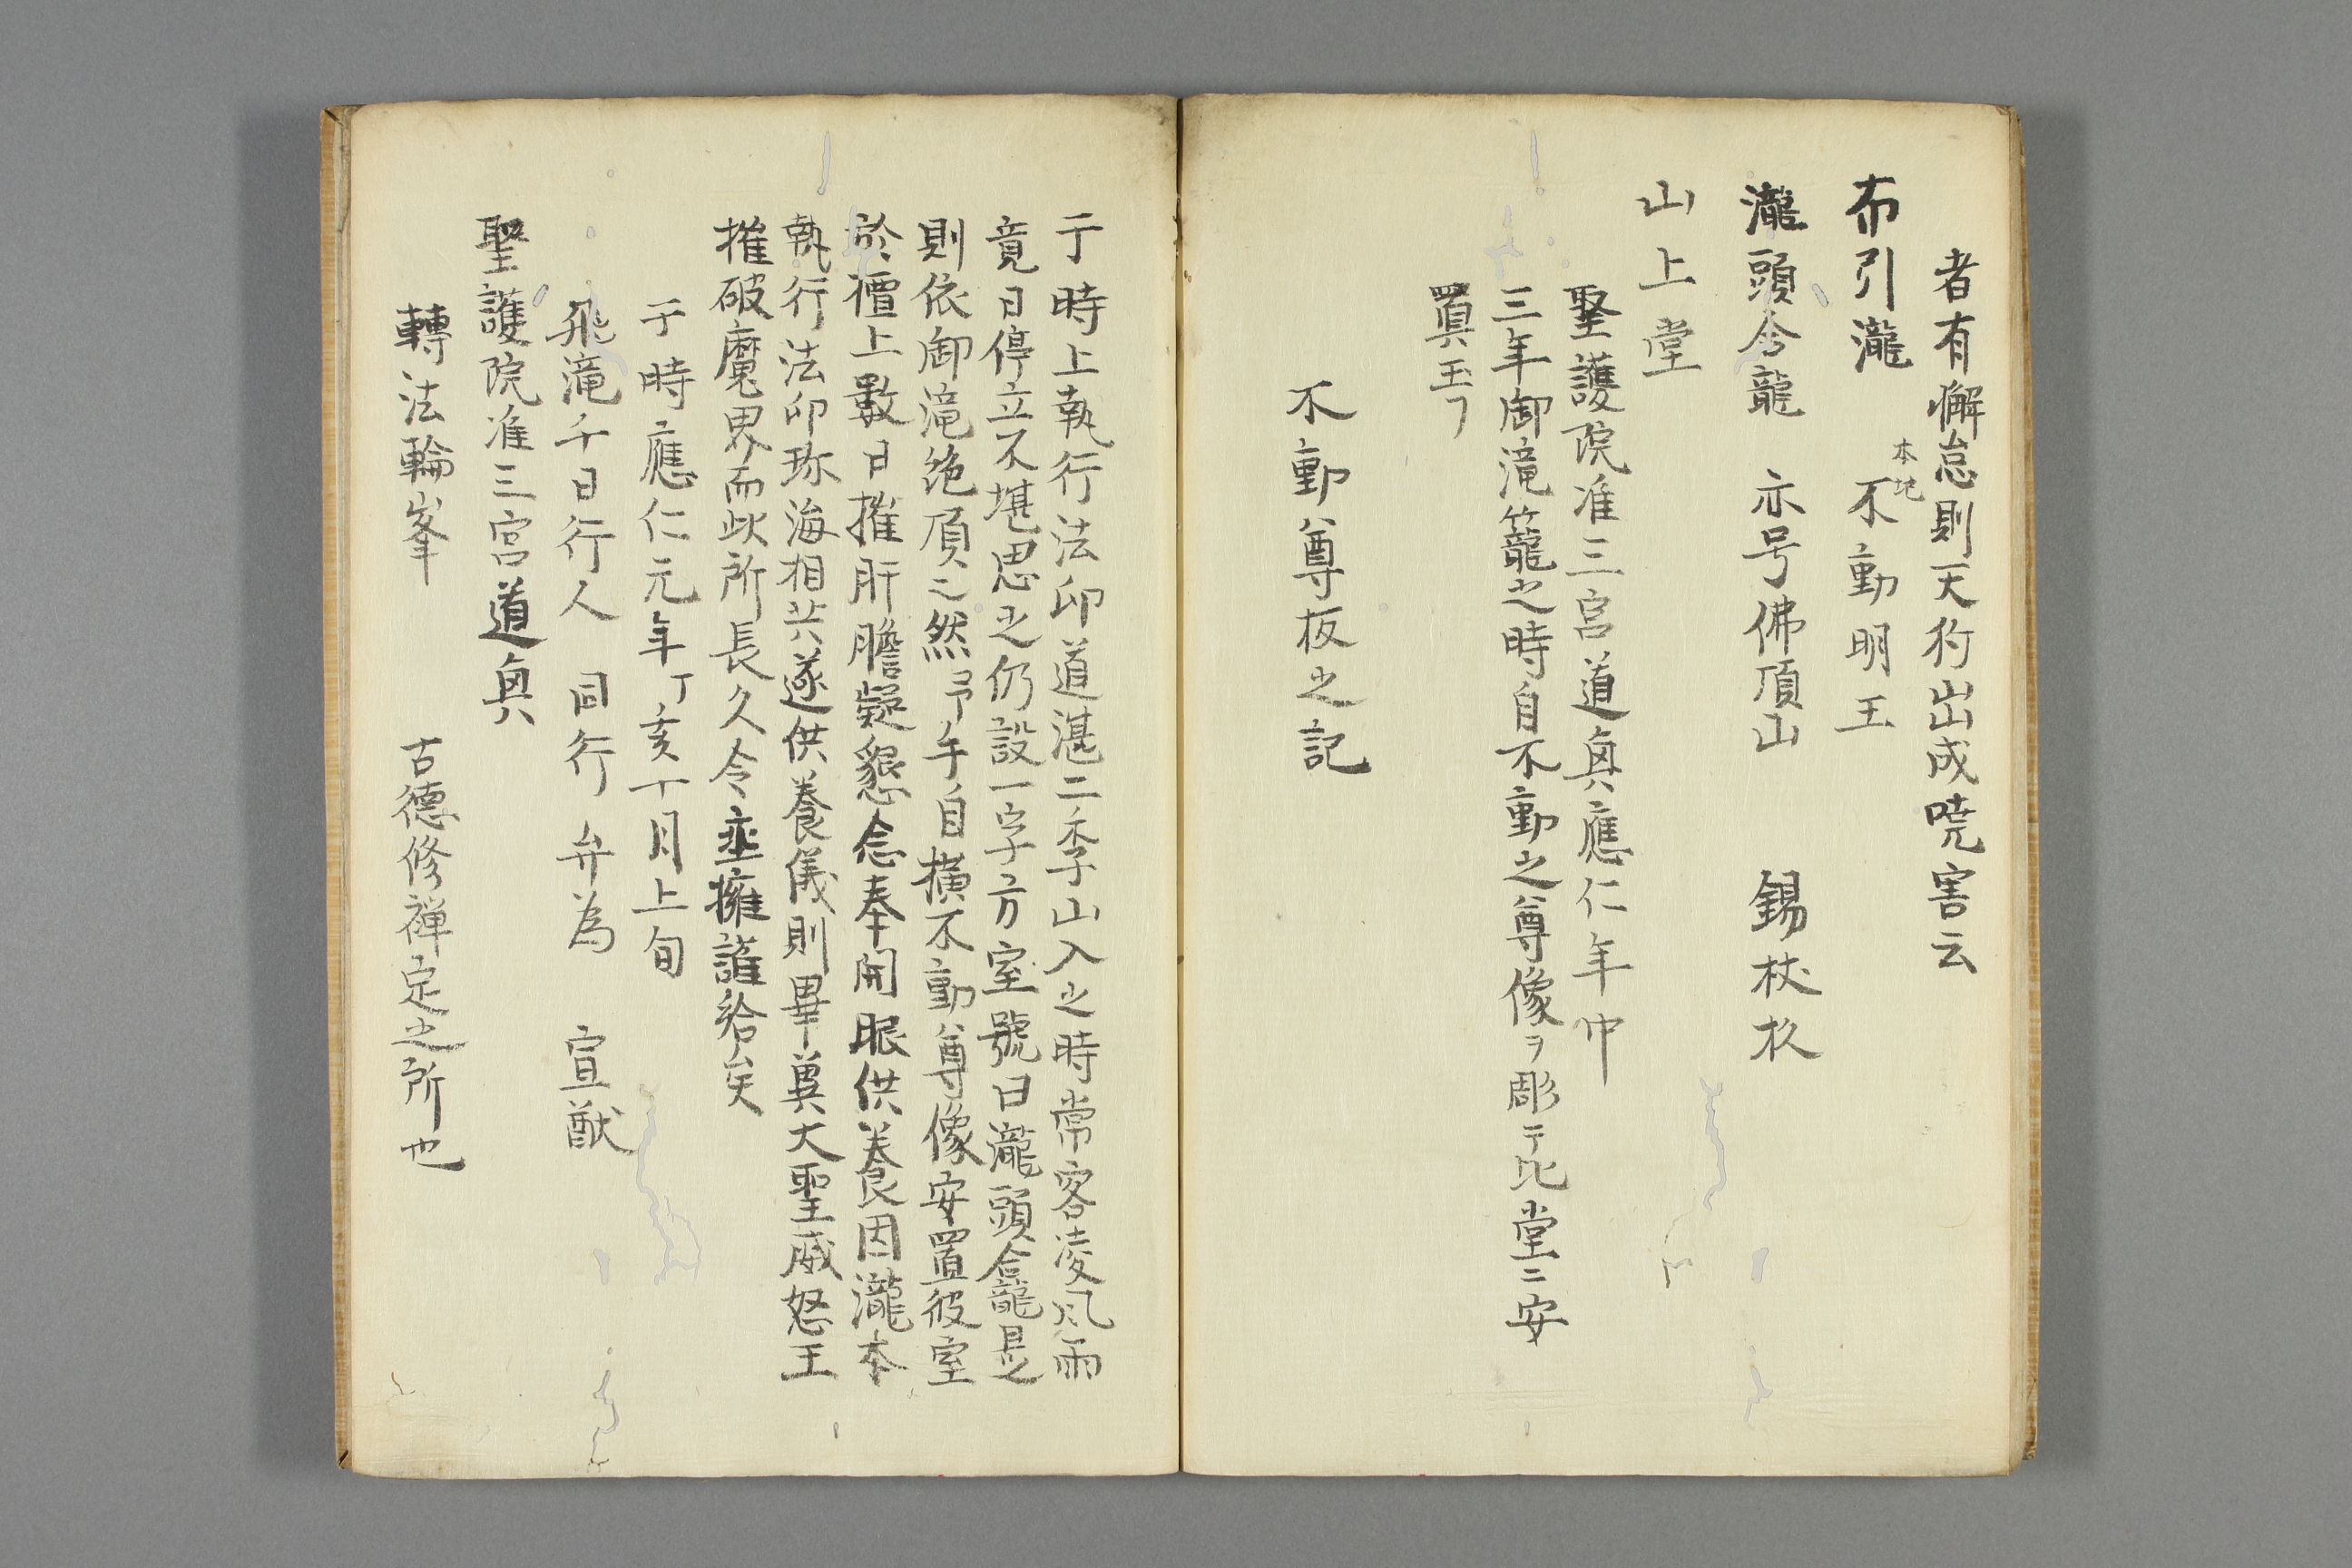 者有懈怠則天狗出成嘵害云
布引瀧 本地 不動明王
瀧頭令龍 亦号佛頂山 錫杖杉
山上堂
聖護院准三宮道興應仁年中
三年御滝籠之時自不動之尊像ヲ彫テ此堂ニ安
置玉フ
不動尊板之記
于時上執行法印道湛二季山入之時常客凌風雨
竟日停立不堪思之仍設一宇方室號曰瀧頭含龍是
則依御滝絶頂之然予手自摸不動尊像安置彼室
於檀上數日摧肝膽凝懇念奉開眼供養因瀧本
執行法印珎海相共遂供養儀則畢冀大聖威怒王
摧破魔界而此所長久令垂擁護給矣
于時應仁元年丁亥十月上旬
飛滝千日行人 同行 弁為 宣猷
聖護院准三宮道興
轉法輪峯 古德修禅定之所也